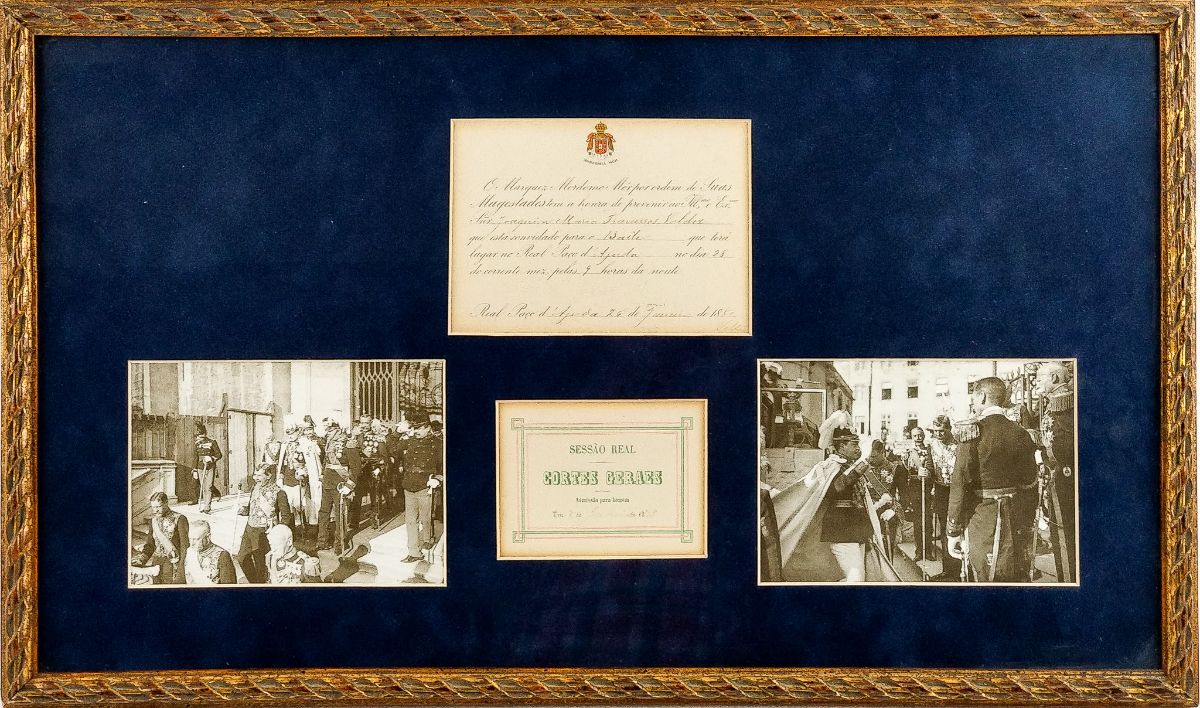 O Marquez Mordomo Mór por ordem de Suas
Magestades tem a honra de prevenir ao Ill.mo e Ex.mo
Snr. Joaquim Maria Travassos Valdez
que está convidado para o Baile que terá
lugar no Real Paço d'Ajuda no dia 28
do corrente mez, pelas 9 horas da noute
Real Paço d'Ajuda 24 de de 18
SESSÃO REAL
CORTES GERAES
Admissão para homem
Em 2 de de 18